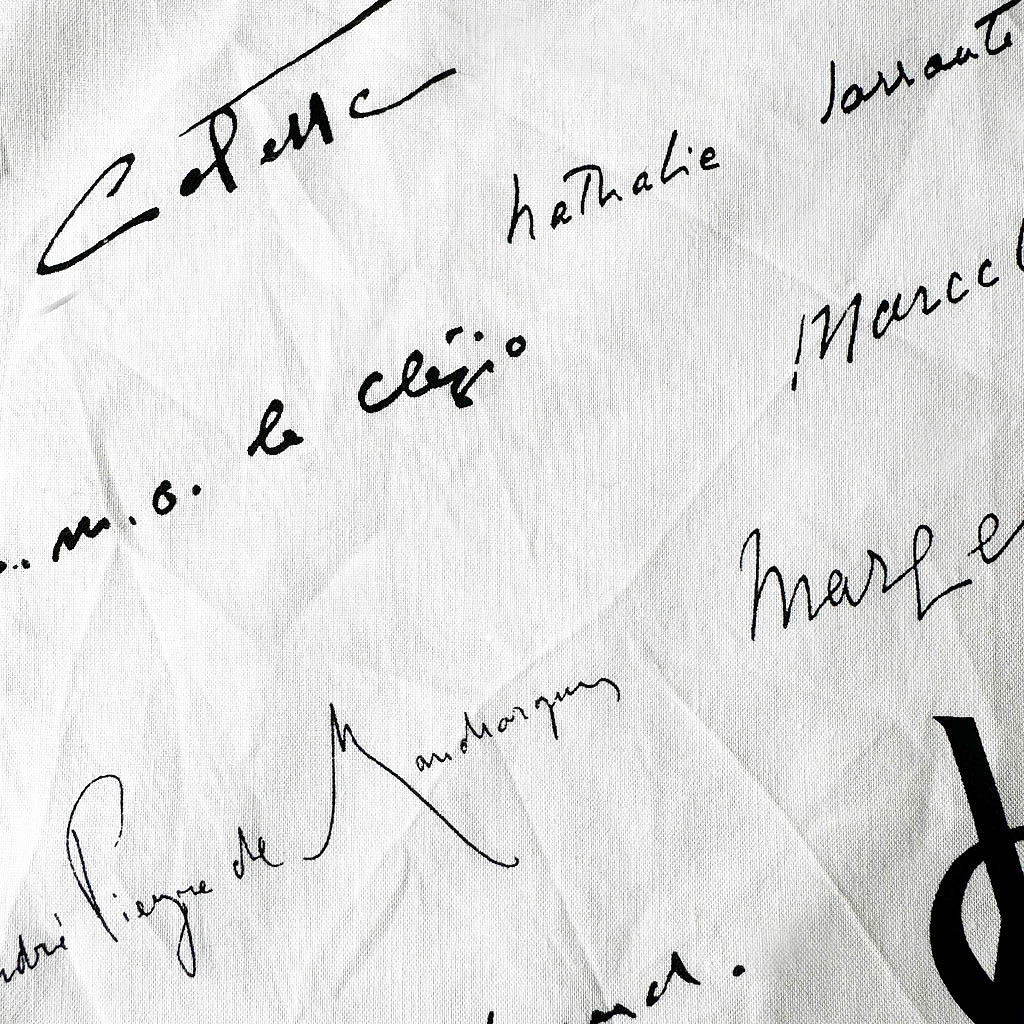 Colette
nathalie sarraute
Marcel
m.G. le clézio
Margue
André Pieyre de Mandiargues